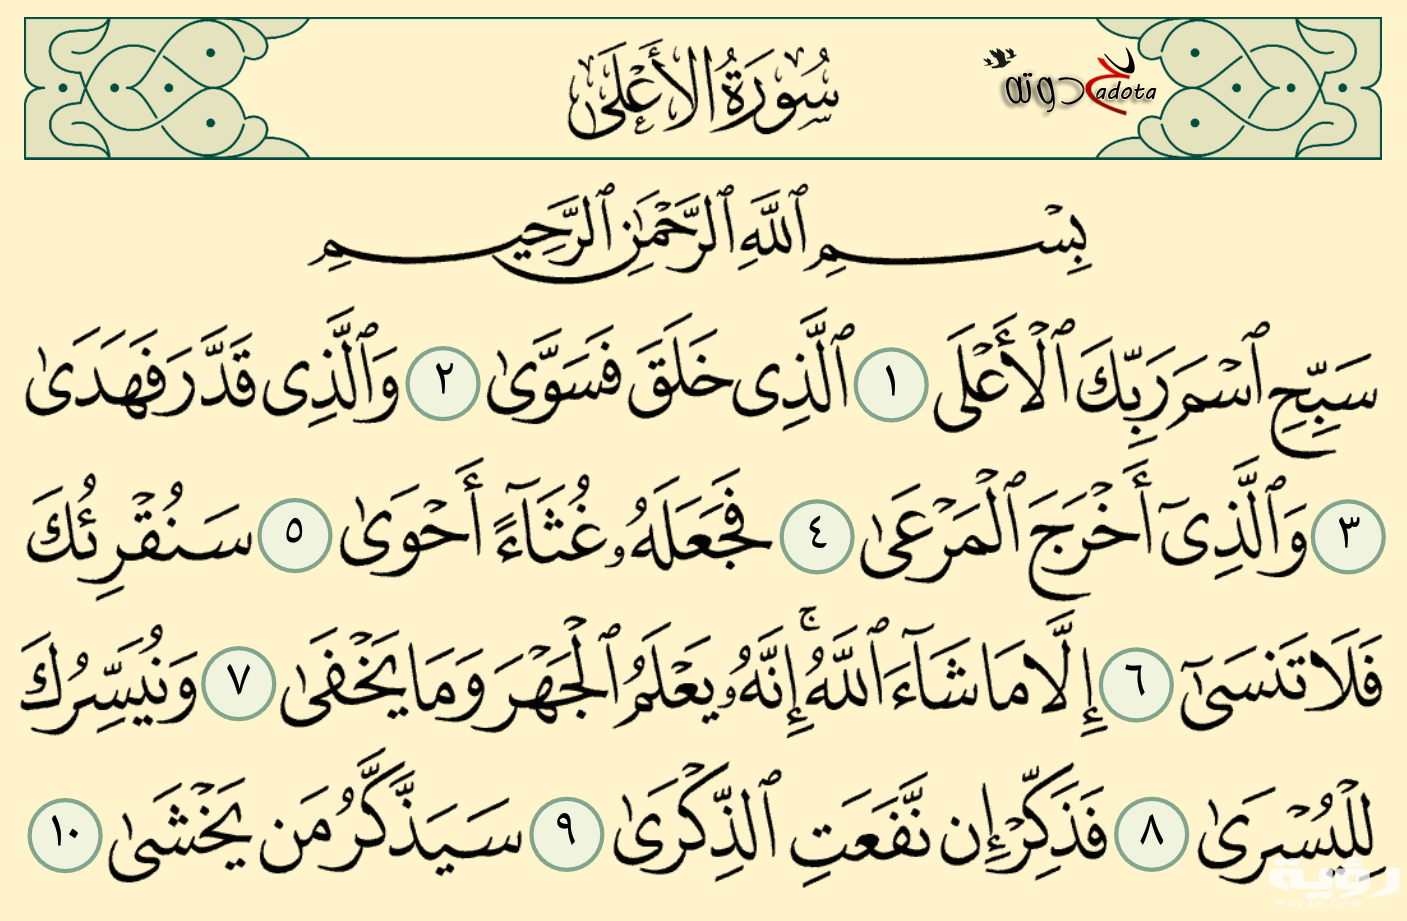 سُورَةُ الأَعْلَى
حدوته
adota
بِسْمِ ٱللَّهِ ٱلرَّحْمَٰنِ ٱلرَّحِيمِ
سَبِّحِ ٱسْمَ رَبِّكَ ٱلْأَعْلَى ١ ٱلَّذِى خَلَقَ فَسَوَّىٰ ٢ وَٱلَّذِى قَدَّرَ فَهَدَىٰ
٣ وَٱلَّذِىٓ أَخْرَجَ ٱلْمَرْعَىٰ ٤ فَجَعَلَهُۥ غُثَآءً أَحْوَىٰ ٥ سَنُقْرِئُكَ
فَلَا تَنسَىٰٓ ٦ إِلَّا مَا شَآءَ ٱللَّهُ ۚ إِنَّهُۥ يَعْلَمُ ٱلْجَهْرَ وَمَا يَخْفَىٰ ٧ وَنُيَسِّرُكَ
لِلْيُسْرَىٰ ٨ فَذَكِّرْ إِن نَّفَعَتِ ٱلذِّكْرَىٰ ٩ سَيَذَّكَّرُ مَن يَخْشَىٰ ١٠
رؤية